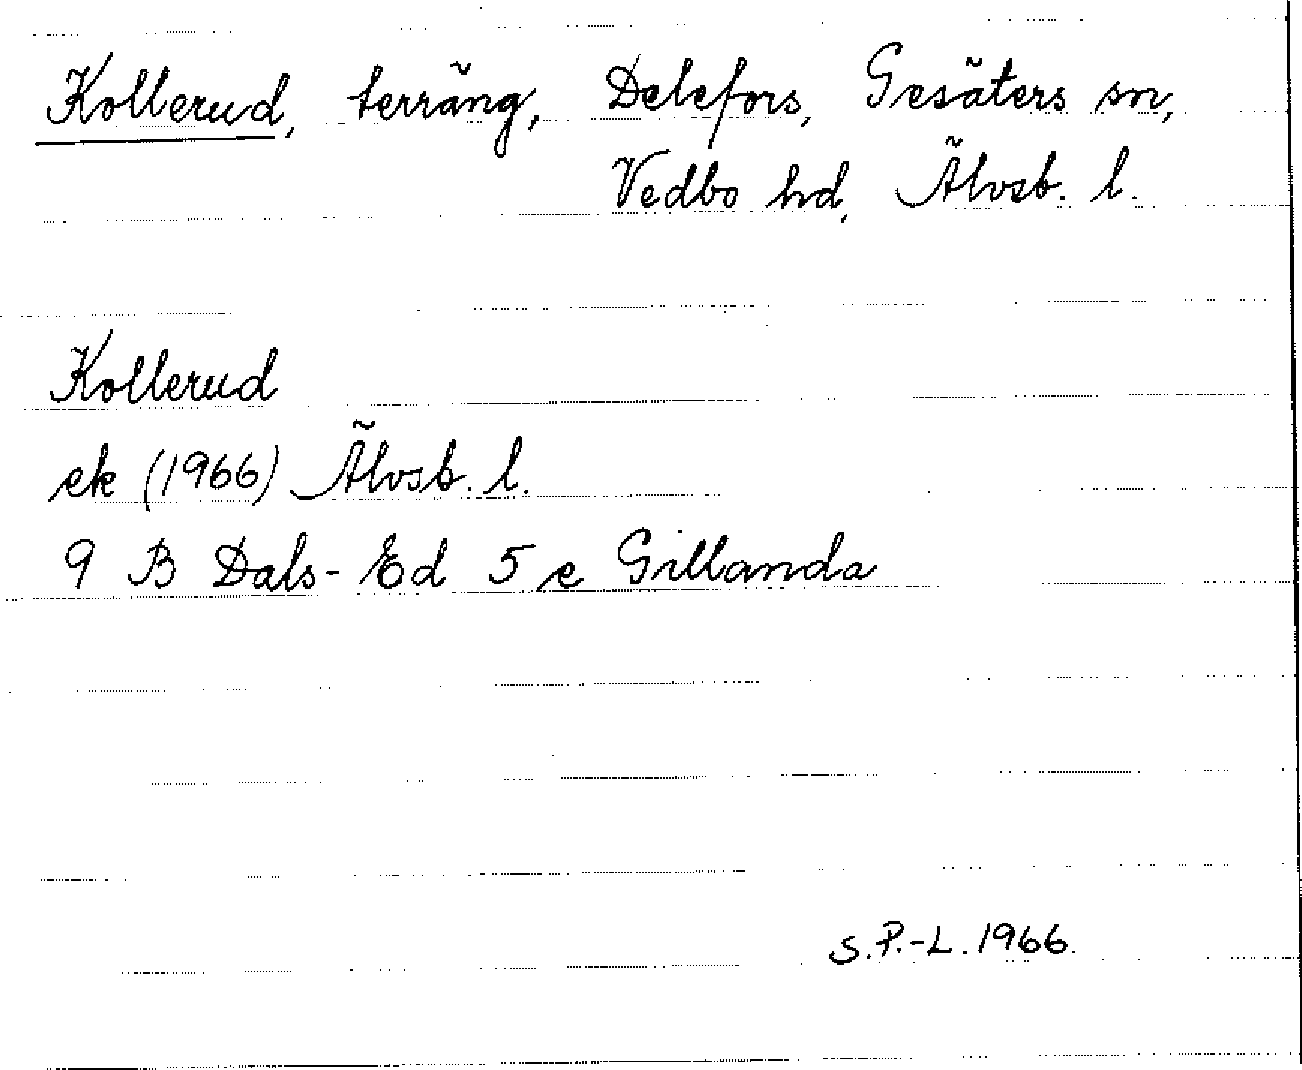 Kollerud, terräng, Delefors, Gesäters sn,
Vedbo hd, Älvsb. l.
Kollerud
ek (1966) Älvsb. l.
9 B Dals-Ed 5 e Gillanda
S.P.-L. 1966.